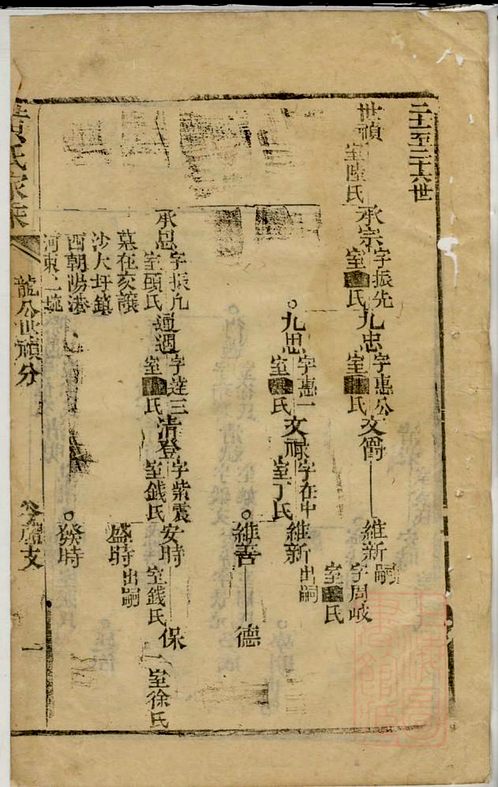 二十二至二十六世
世禎 室陸氏
承宗 字振先 室氏
九忠 字惠公 室氏
文爵
維新 嗣 字周岐 室氏
九思 字惠一 室氏
文祿 字在中 室丁氏
維新 出嗣
維善
德
承忠 字振九 室頭氏
墓在亥讓
沙大圩鎮
西朝陽港
河東二埦
通遇 字達三 室氏
清登 字紫震 室錢氏
安時 室錢氏
保一 室徐氏
盛時 出嗣
發時
黃氏家乘
龍公世禎分
支
一